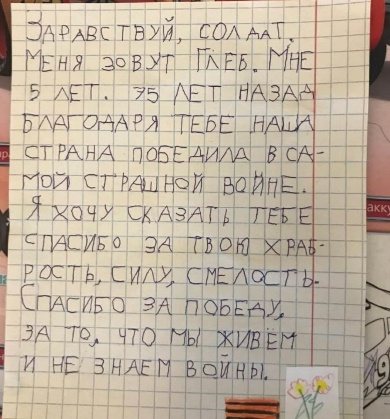 Здравствуй, солдат.
Меня зовут Глеб. Мне
5 лет. 75 лет назад
благодаря тебе наша
страна победила в са-
мой страшной войне.
Я хочу сказать тебе
спасибо за твою храб-
рость, силу, смелость.
Спасибо за победу,
за то, что мы живём
и не знаем войны.